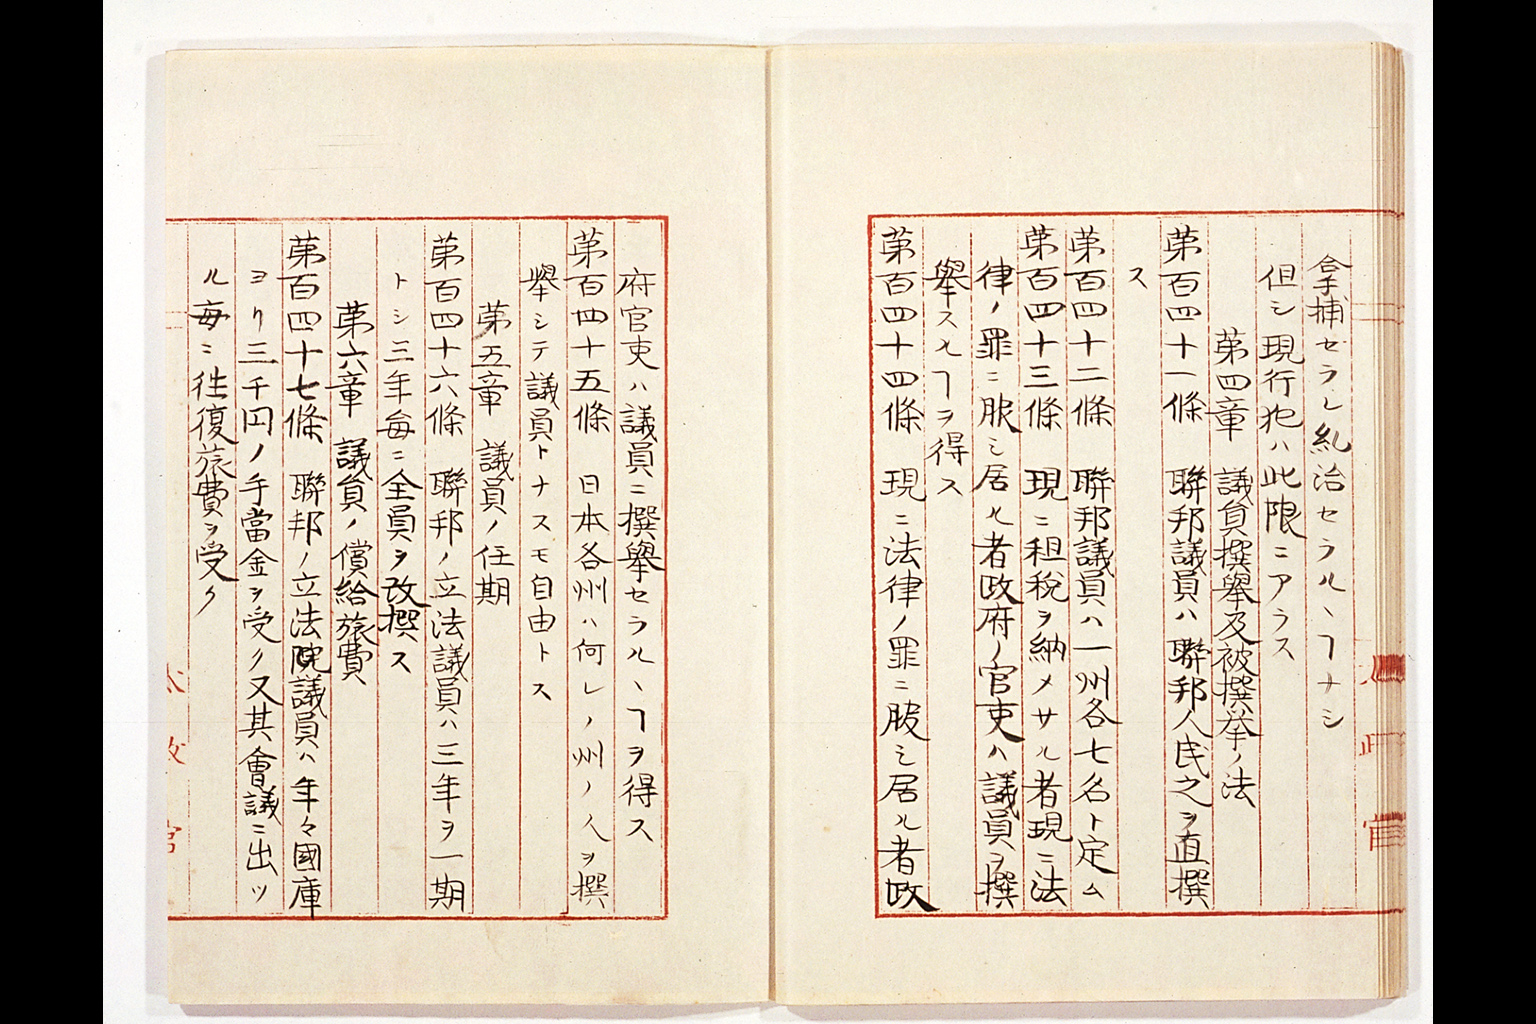 拿捕セラレ糺治セラルヽヿナシ
但シ現行犯ハ此限ニアラス
第四章　議員撰擧及被撰挙ノ法
第百四十一條　聯邦議員ハ聯邦人民之ヲ直撰
ス
第百四十二條　聯邦議員ハ一州各七名ト定ム
第百四十三條　現ニ租税ヲ納メサル者現ニ法
律ノ罪ニ服シ居ル者政府ノ官吏ハ議員ヲ撰
擧スルヿヲ得ス
第百四十四條　現ニ法律ノ罪ニ服シ居ル者政
府官吏ハ議員ニ撰擧セラルヽヿヲ得ス
第百四十五條　日本各州ハ何レノ州ノ人ヲ撰
擧シテ議員トナスモ自由トス
第五章　議員ノ任期
第百四十六條　聯邦ノ立法議員ハ三年ヲ一期
トシ三年毎ニ全員ヲ改撰ス
第六章　議員ノ償給旅費
第百四十七條　聯邦ノ立法院議員ハ年々國庫
ヨリ三千円ノ手當金ヲ受ク又其會議ニ出ツ
ル毎ニ徃復旅費ヲ受ク